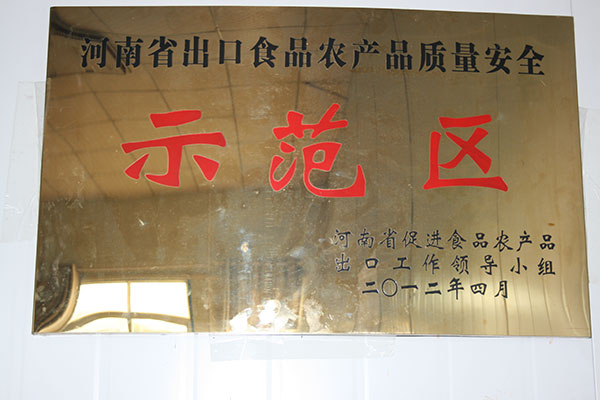 河南省出口食品农产品质量安全
示范区
河南省促进食品农产品
出口工作领导小组
二〇一二年四月